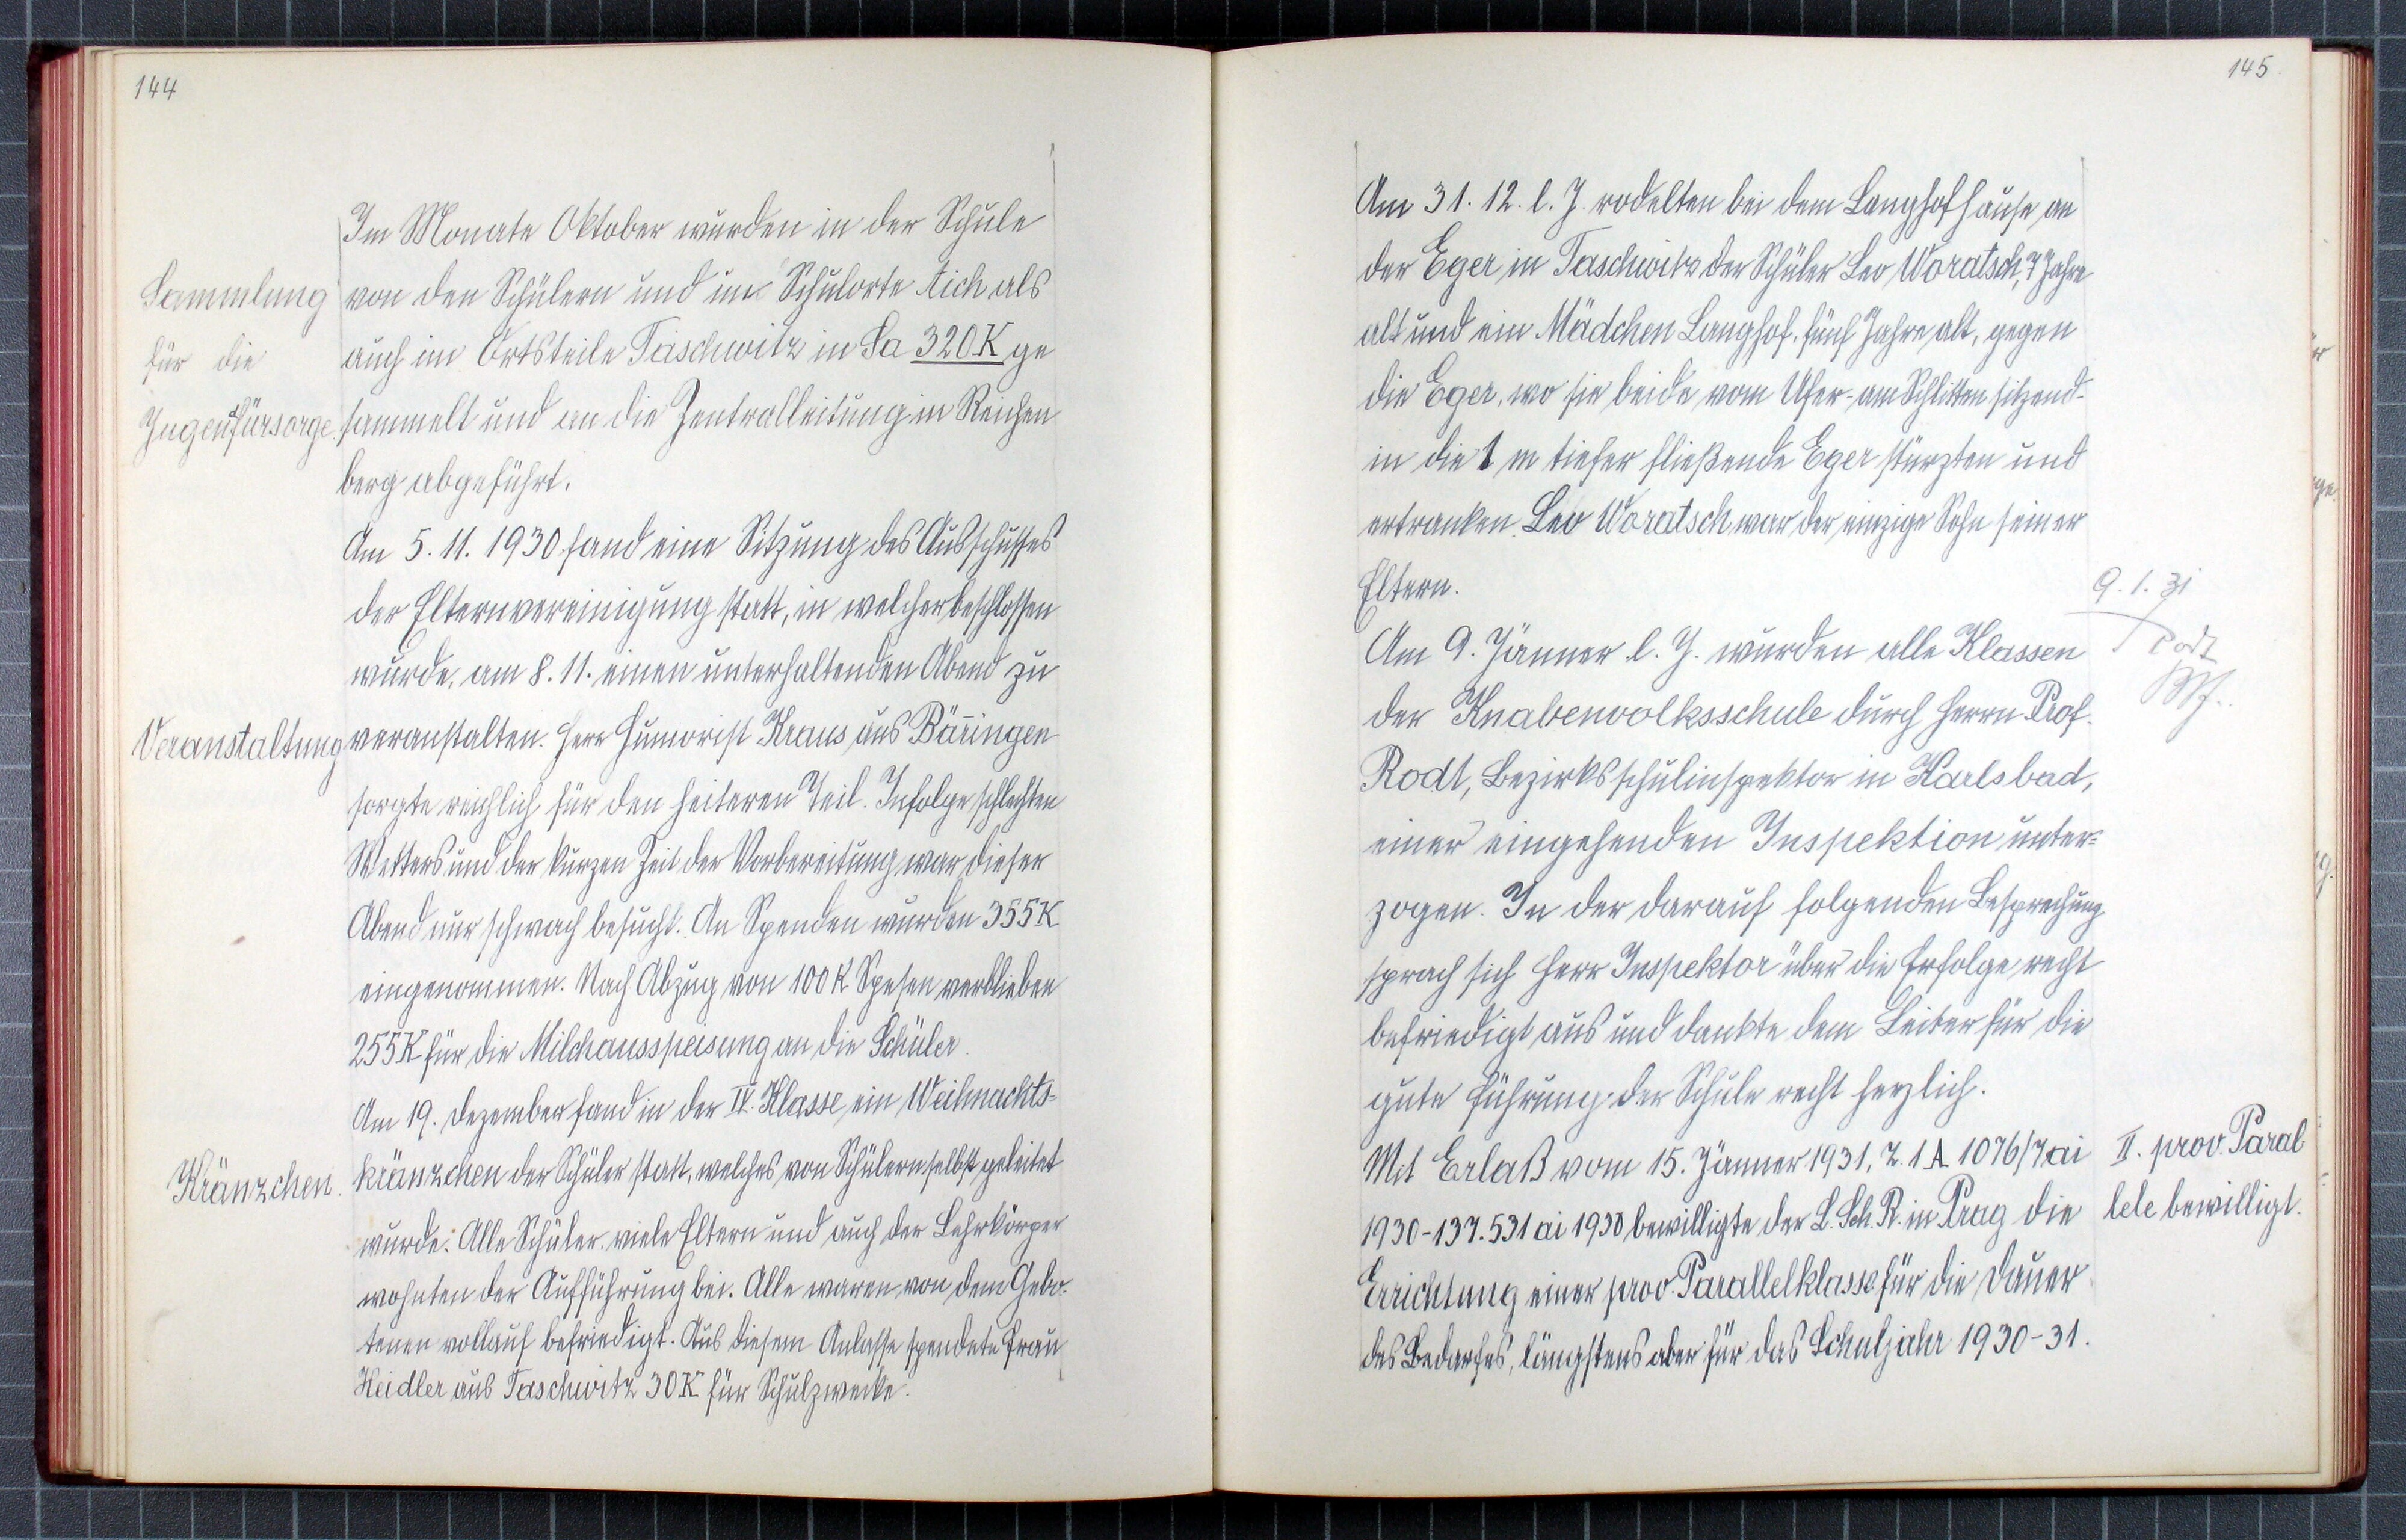 144
Im Monate Oktober wurden in der Schule
Sammlung
von den Schülern und im Schulorte Aich als
für die
auch im Ortsteile Taschwitz in Sa 320K ge
Jugenfürsorge.
sammelt und an die Zentralleitung in Reichen
berg abgeführt.
Am 5. 11. 1930 fand eine Sitzung des Ausschusses
der Elternvereinigung statt, in welcher beschlossen
wurde, am 8. 11. einen unterhaltenden Abend zu
Veranstaltung
veranstalten. Herr Humorist Kraus aus Bäringen
sorgte reichlich für den heiteren Teil. Infolge schlechten
Wetters und der kurzen Zeit der Vorbereitung war dieser
Abend nur schwach besucht. An Spenden wurden 355K
eingenommen. Nach Abzug von 100K Spesen verblieben
255K für die Milchausspeisung an die Schüler.
Am 19. Dezember fand in der IV. Klasse ein Weihnachts-
Kränzchen.
kränzchen der Schüler statt, welches von Schülern selbst geleitet
wurde. Alle Schüler, viele Eltern und auch der Lehrkörper
wohnten der Aufführung bei. Alle waren von dem Gebo-
tenen vollauf befriedigt. Aus diesem Anlasse spendete Frau
Heidler aus Taschwitz 30K für Schulzwecke.
145.
Am 31. 12. l. J. rodelten bei dem Langhofhause an
der Eger in Taschwitz der Schüler Leo Woratsch, 7 Jahre
alt und ein Mädchen Langhof, fünf Jahre alt, gegen
die Eger, wo sie beide vom Ufer-am Schlitten sitzend-
in die 1 m tiefer fließende Eger stürzten und
ertranken. Leo Woratsch war der einzige Sohn seiner
Eltern.
9. 1. 31
Rodt
Am 9. Jänner l. J. wurden alle Klassen
der Knabenvolksschule durch Herrn Prof.
Rodt, Bezirksschulinspektor in Karlsbad,
einer eingehenden Inspektion unter=
zogen. In der darauf folgenden Besprechung
sprach sich Herr Inspektor über die Erfolge recht
befriedigt aus und dankte dem Leiter für die
gute Führung der Schule recht herzlich.
Mit Erlaß vom 15. Jänner 1931, Z. 1 A 1076/7 ai
II. prov. Paral
1930-137.531 ai 1930 bewilligte der L. Sch. R. in Prag die
lele bewilligt.
Errichtung einer prov. Parallelklasse für die Dauer
des Bedarfes, längstens aber für das Schuljahr 1930-31.